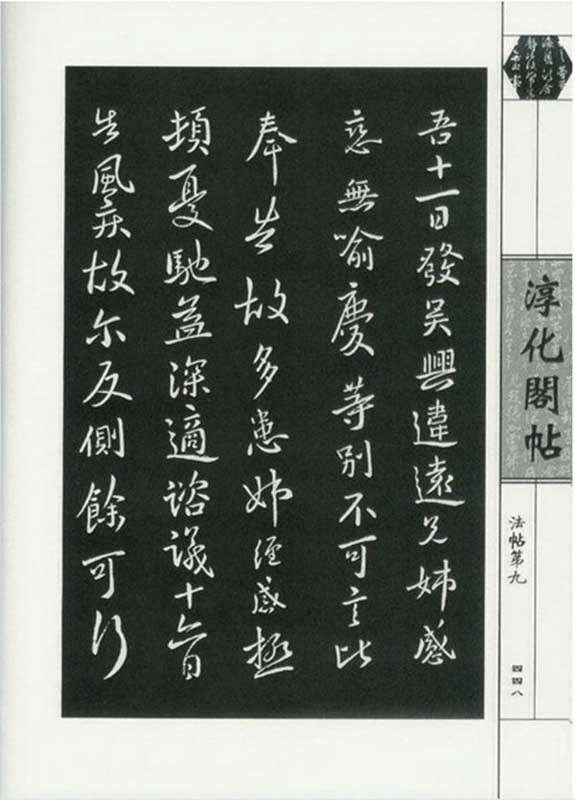 吾十一日發吳興違遠兄姊感
戀無喻慶等別不可言比
奉告故多患姊經感極
頓憂馳益深適諮議十六日
告風疾故尔反側餘可行
淳化閣帖
法帖第九
四四八